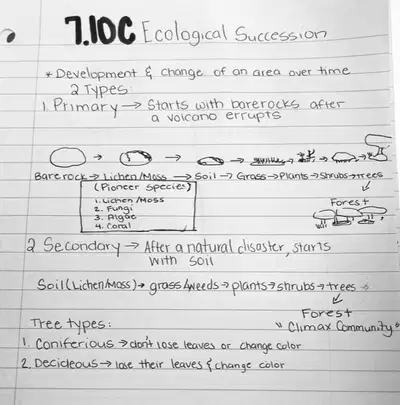 7.10C Ecological Succession
* Development & change of an area over time
2 Types:
1. Primary → Starts with barerocks after
a volcano errupts
Bare rock → Lichen/Moss → Soil → Grass → Plants → Shrubs → trees
(Pioneer Species)
1. Lichen/Moss
2. Fungi
3. Algae
4. Coral
Forest
2 Secondary → After a natural disaster, starts
with soil
Soil (Lichen/Moss) → grass/weeds → plants → shrubs → trees
Forest
"Climax Community"
Tree types:
1. Coniferious → don't lose leaves or change color
2. Decideous → lose their leaves & change color